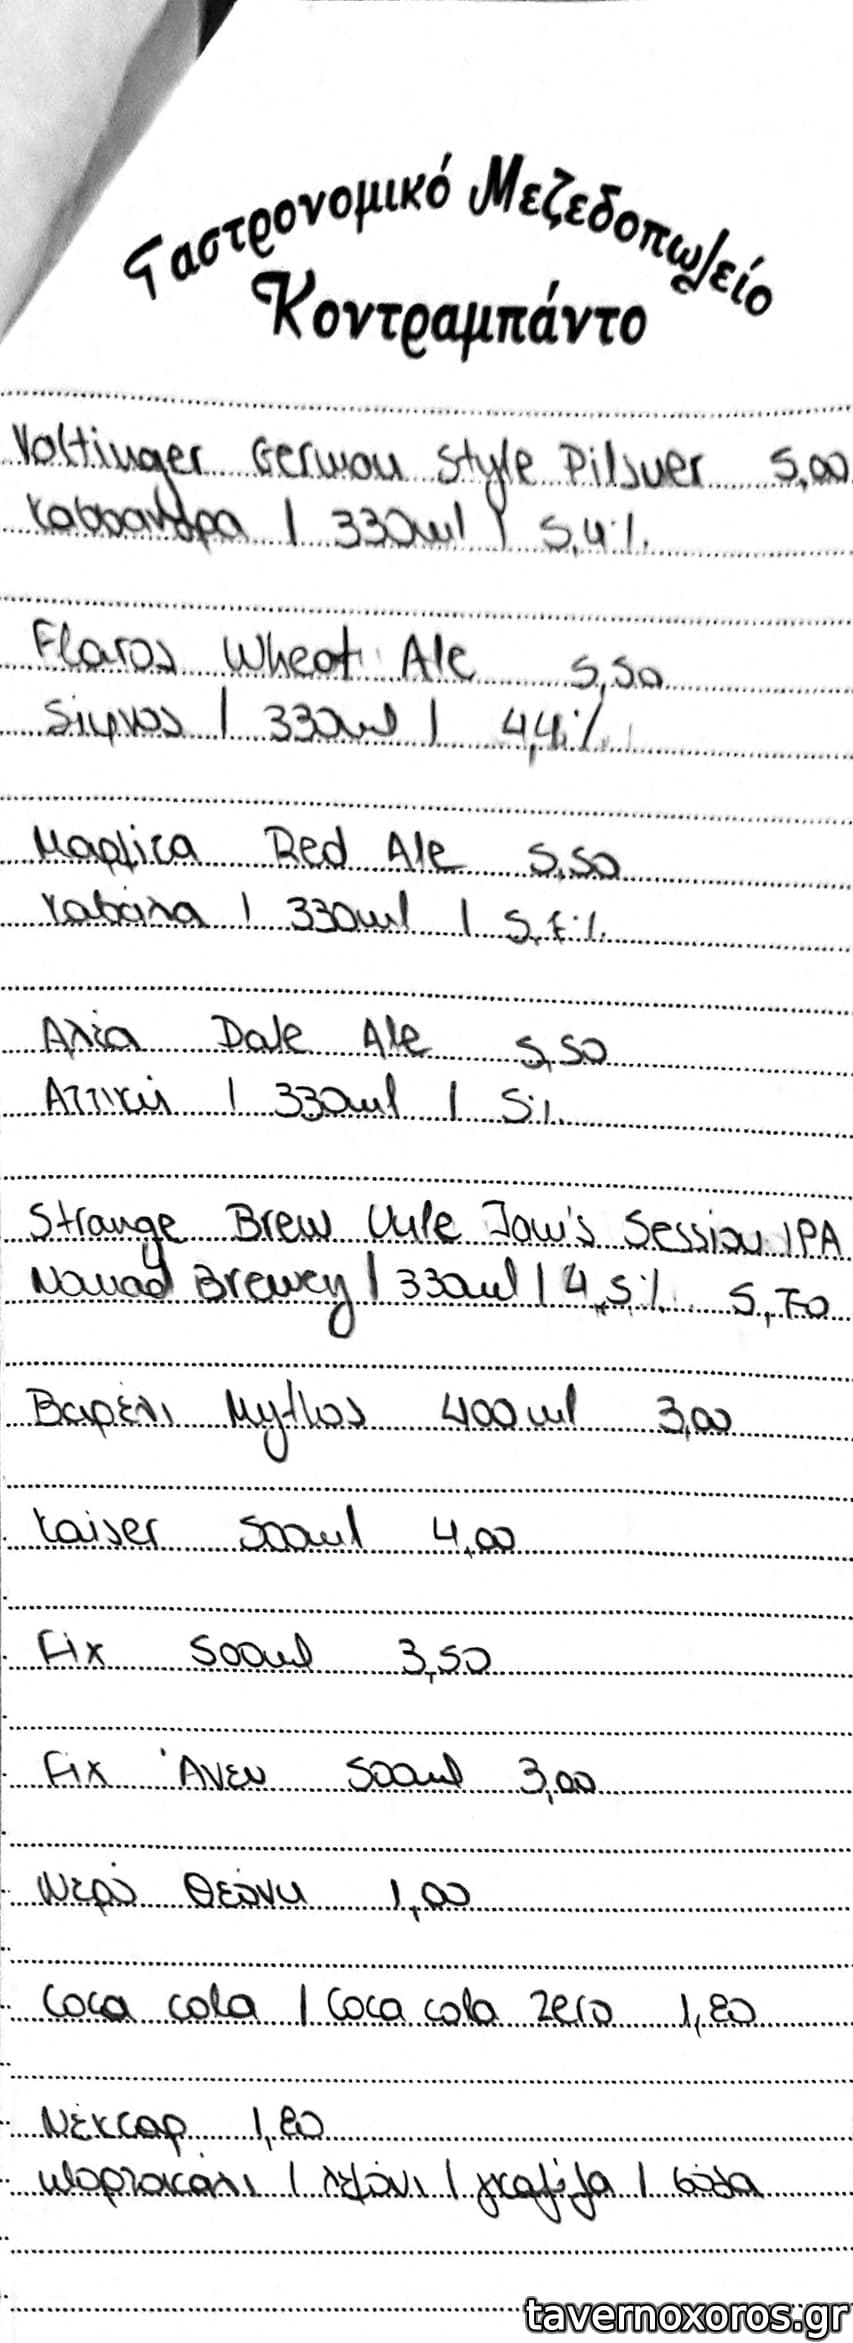 Γαστρονομικό Μεζεδοπωλείο
Κοντραμπάντο
Voltinger German Style Pilsner 5,00
Κασσάνδρα | 330ml | 5,4%
Flaros Wheat Ale 5,50
Σίφνος | 330ml | 4,4%
Μαρμίτα Red Ale 5,50
Καβάλα | 330ml | 5,7%
Αλέα Pale Ale 5,50
Αττική | 330ml | 5%
Strange Brew Jaw's Session IPA
Nomad Brewey | 330ml | 4,5% 5,70
Βαρέλι Mythos 400ml 3,00
Kaiser 500ml 4,00
Fix 500ml 3,50
Fix Άνευ 500ml 3,00
Νερό Θεόνη 1,00
Coca cola | Coca cola zero 1,80
Νέκταρ 1,80
πορτοκάλι | λεμόνι | γκαζόζα | σόδα
tavernoxoros.gr